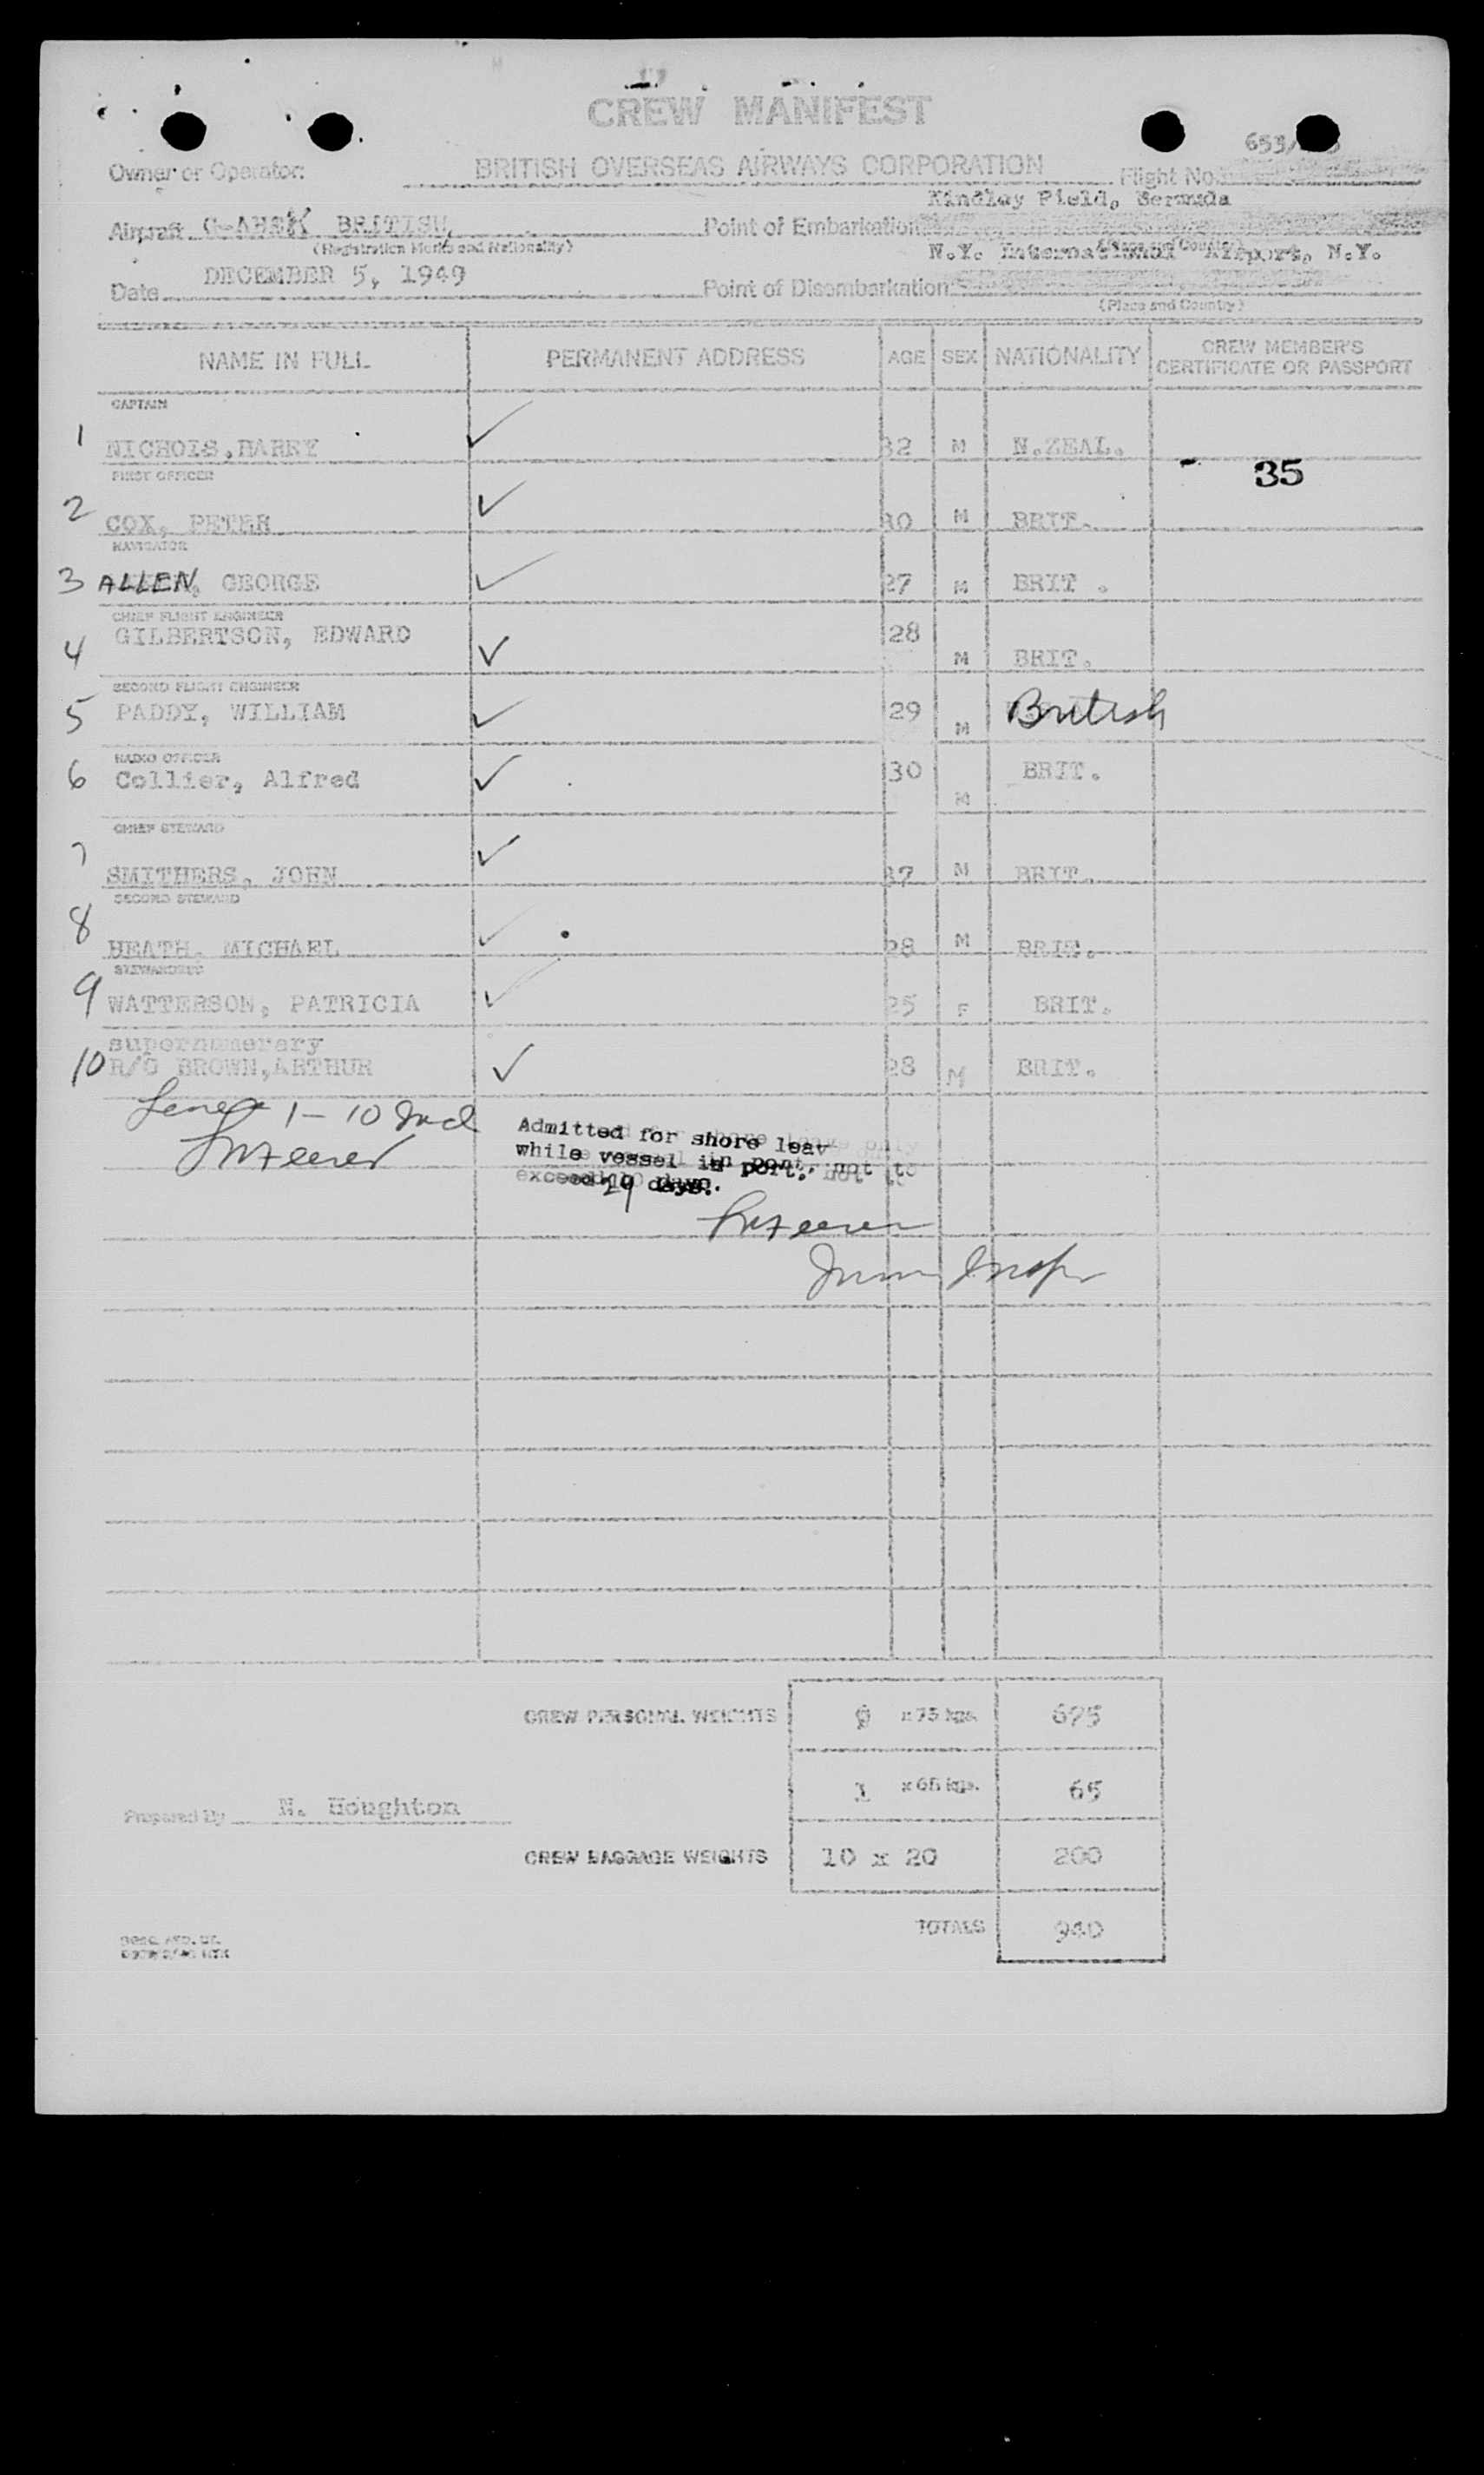 CREW MANIFEST
Owner or Operator: BRITISH OVERSEAS AIRWAYS CORPORATION Flight No. 653/
Kindley Field, Bermuda
Aircraft BRITISH Point of Embarkation
(Registration Marks and Nationality) (Place and Country)
N.Y. International Airport, N.Y.
Date DECEMBER 5, 1949 Point of Disembarkation
(Place and Country)
NAME IN FULL PERMANENT ADDRESS AGE SEX NATIONALITY CREW MEMBER'S CERTIFICATE OR PASSPORT
CAPTAIN
1 NICHOLS, HARRY ✓ 32 M N.ZEAL.
35
FIRST OFFICER
2 COX, PETER ✓ 30 M BRIT.
NAVIGATOR
3 ALLEN, GEORGE ✓ 27 M BRIT.
CHIEF FLIGHT ENGINEER
4 GILBERTSON, EDWARD ✓ 28 M BRIT.
SECOND FLIGHT ENGINEER
5 PADDY, WILLIAM ✓ 29 M British
RADIO OFFICER
6 Collier, Alfred ✓ 30 M BRIT.
CHIEF STEWARD
7 SMITHERS, JOHN ✓ 37 M BRIT.
SECOND STEWARD
8 HEATH, MICHAEL ✓ 28 M BRIT.
STEWARDESS
9 WATTERSON, PATRICIA ✓ 25 F BRIT.
supernumerary
10 R/O BROWN, ARTHUR ✓ 28 M BRIT.
1-10 Incl
Admitted for shore leav
while vessel in port, not to
exceed 29 days.
Imm Insp
CREW PERSONAL WEIGHTS 9 x 75 kgs. 675
1 x 65 kgs. 65
Prepared By N. Houghton
CREW BAGGAGE WEIGHTS 10 x 20 200
TOTALS 940